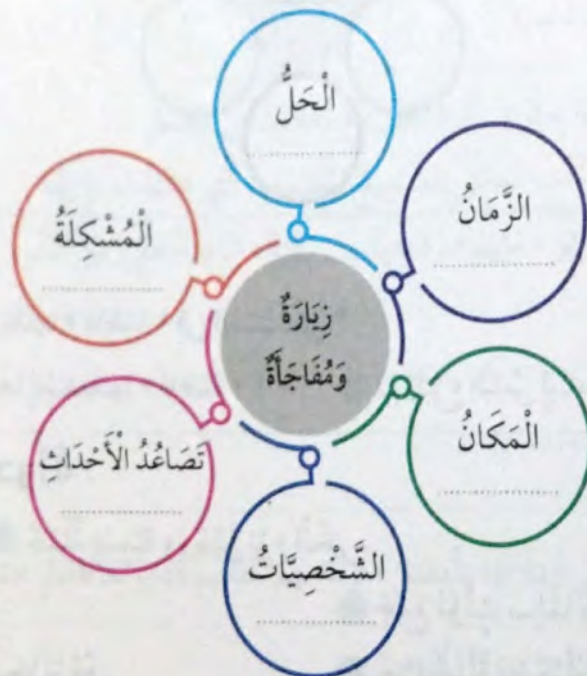 الْحَلُّ
الزَّمَانُ
الْمُشْكِلَةُ
زِيَارَةٌ
وَمُفَاجَأَةٌ
الْمَكَانُ
تَصَاعُدُ الْأَحْدَاثِ
الشَّخْصِيَّاتُ